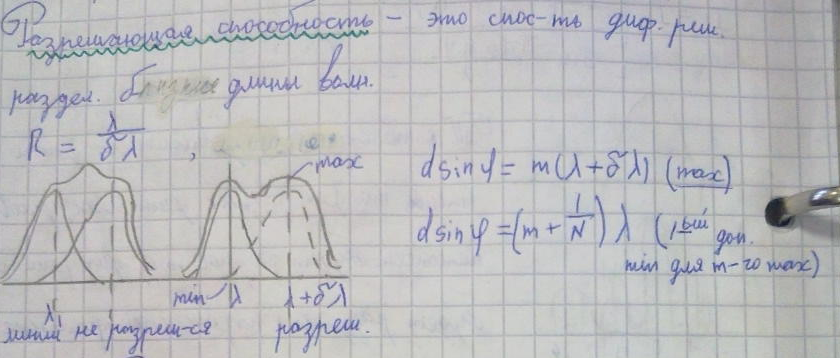 Разрешающая способность – это спос-ть диф. реш.
раздел. близкие длины волн.
R = λ/δλ ,
max
d sin φ = m(λ + δλ) (max)
d sin φ = (m + 1/N) λ (1ый доп.
min для m-го max)
λ₁ min λ λ+δλ
линии не разреш-ся разреш.